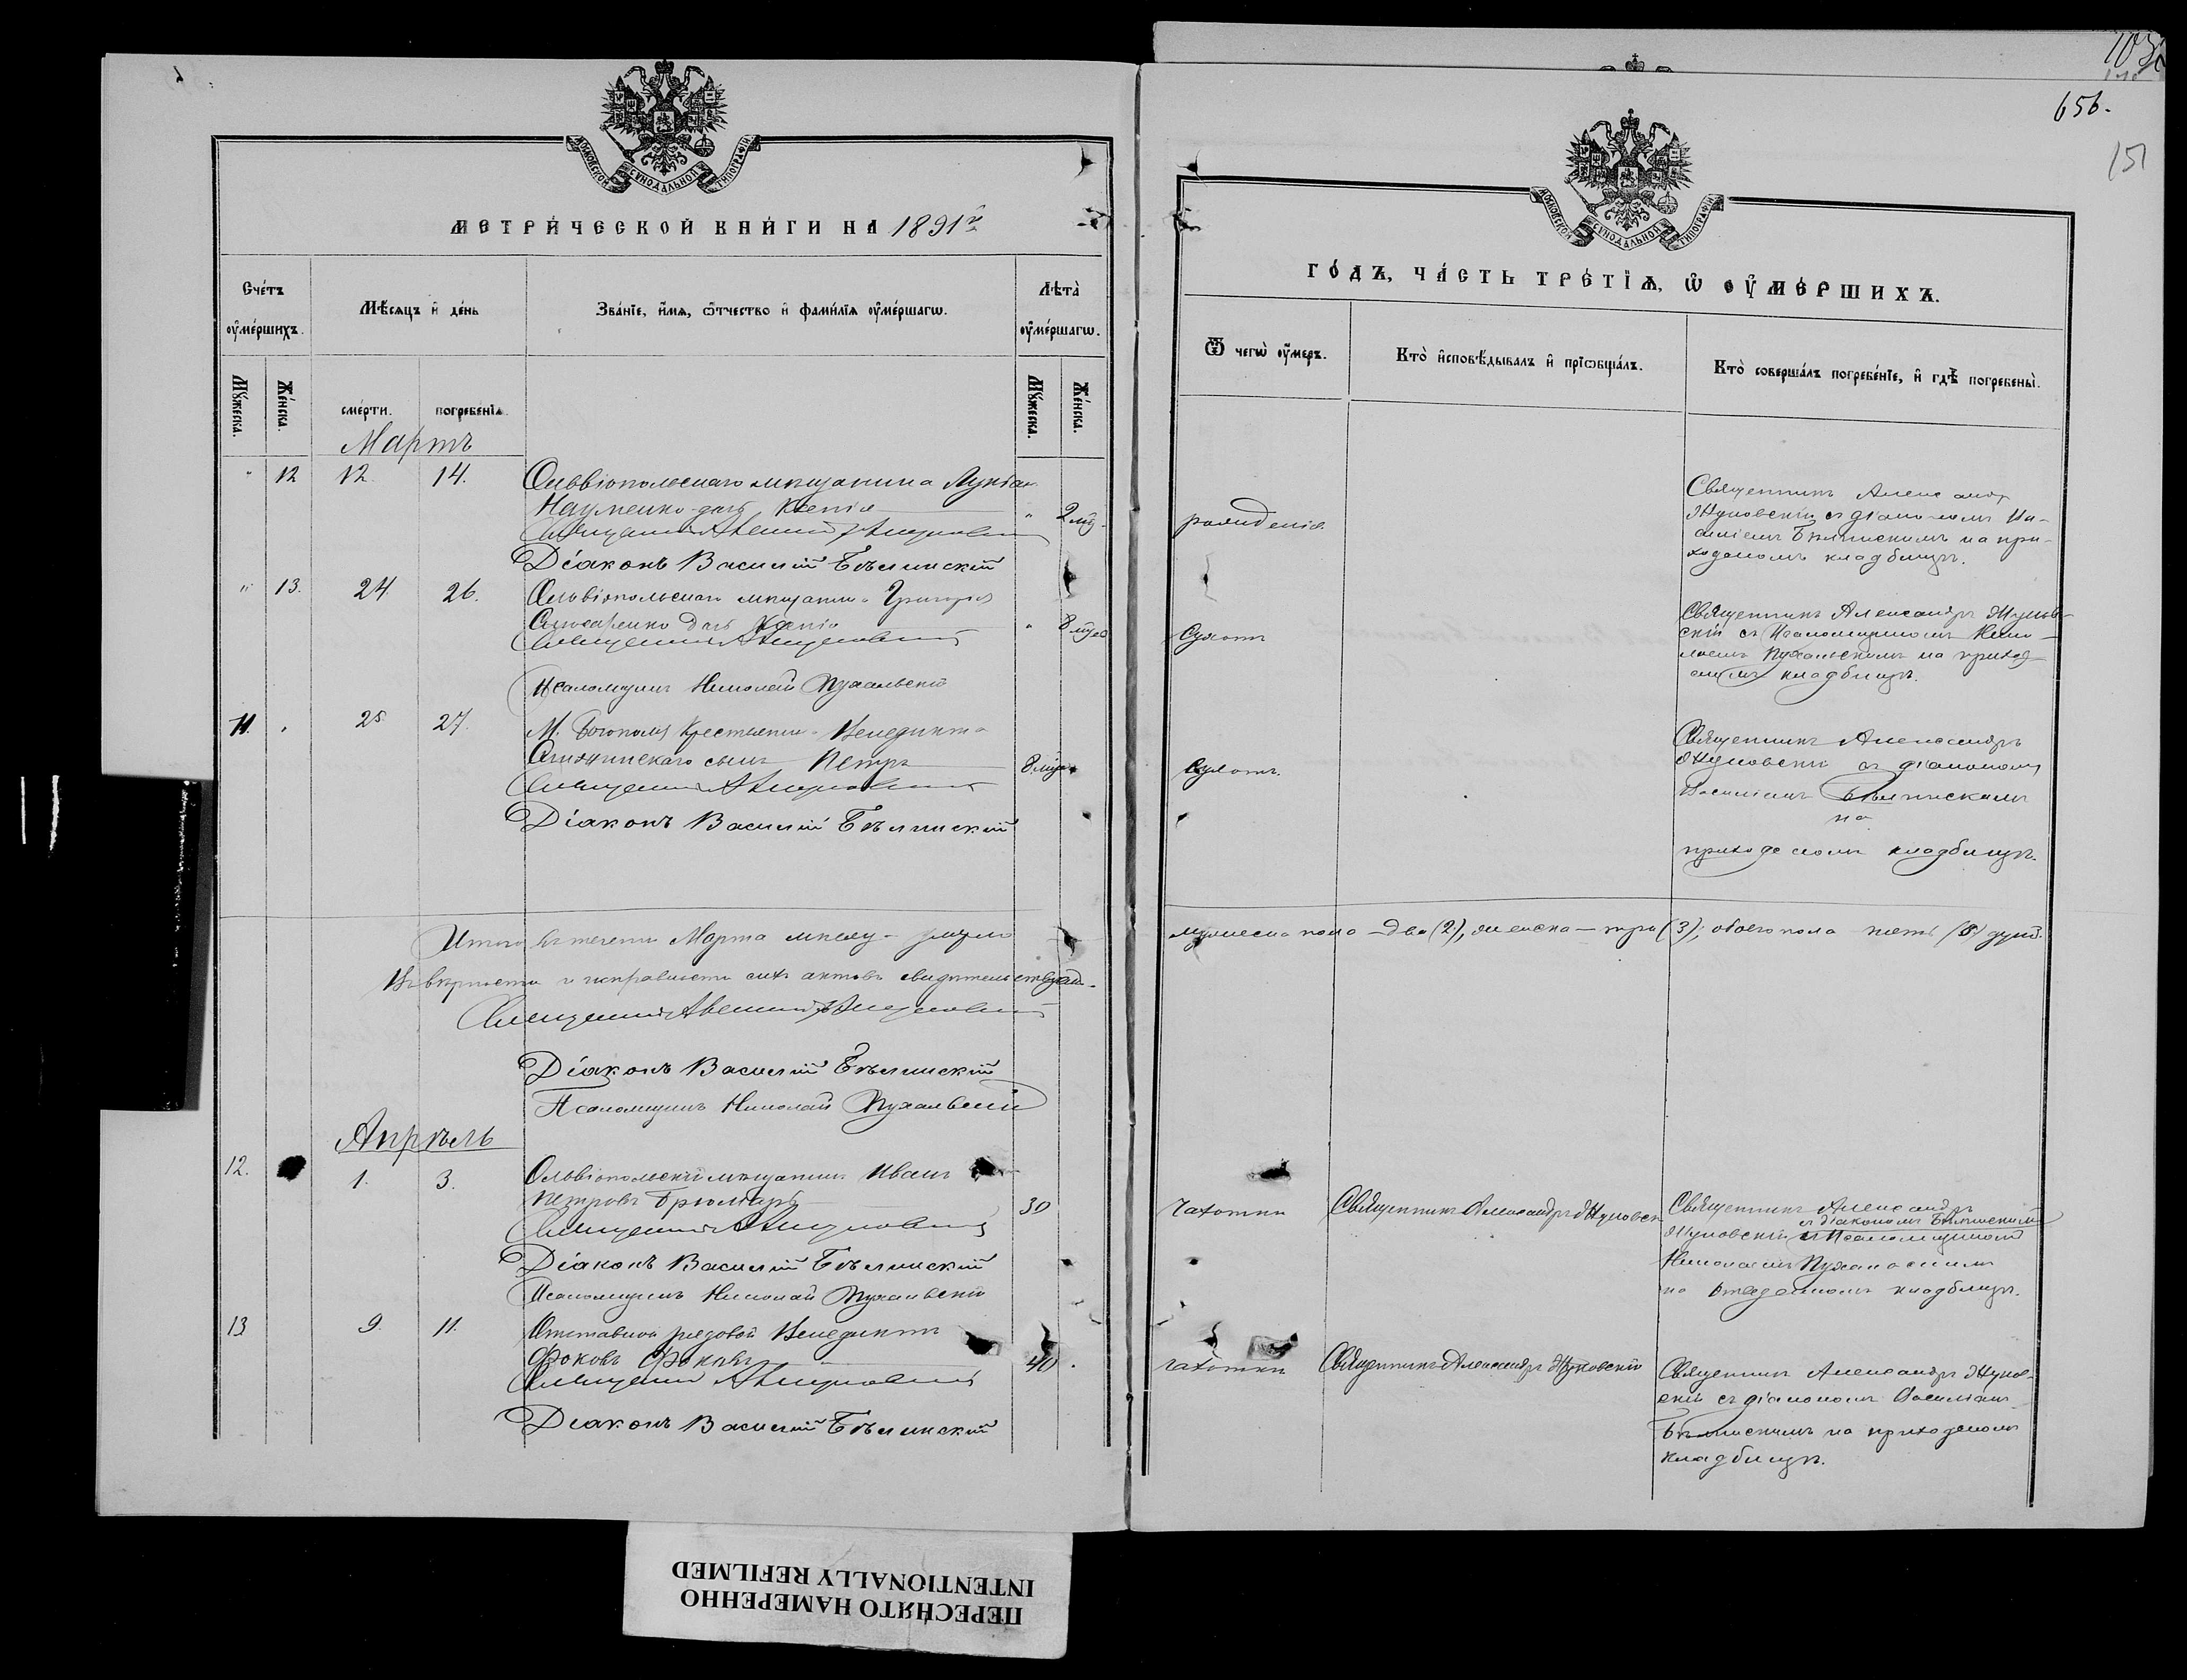 656.
151
МОСКОВСКОЙ СѴНОДАЛЬНОЙ ТИПОГРАФІИ
МЕТРИ́ЧЕСКОЙ КНИ́ГИ НА 1891й
Сче́тъ оу҆ме́ршихъ.
Мѣ́сяцъ и҆ де́нь
Зва́нїе, и҆́мя, ѻ҆́тчество и҆ фами́лїя оу҆ме́ршагѡ.
Лѣта̀ оу҆ме́ршагѡ.
Мꙋ́жеска.
Же́нска.
сме́рти.
погребе́нїя.
Мꙋ́жеска.
Же́нска.
Мартъ
" 12 12 14. Ольвіопольскаго мѣщанина Лукіан
Науменко дочь Ксенія " 2 мѣ.
Священникъ Жуковскій
Діаконъ Василій Бѣлинскій
" 13. 24 26. Ольвіопольскаго мѣщанина Григорія
дочь Ксенія " 8 мѣс
Священникъ Жуковскій
Псаломщикъ Николай Пухальскій
11. " 25 27. М. Богополя крестьянина Венедикта
сынъ Петръ 8 мѣс
Священникъ Жуковскій
Діаконъ Василій Бѣлинскій
Итого въ теченіи Марта мѣсяца умерло
Въ вѣрности и исправности сихъ актовъ свидѣтельствуем
Священникъ Жуковскій
Діаконъ Василій Бѣлинскій
Псаломщикъ Николай Пухальскій
Апрѣль
12. 1. 3. Ольвіопольскій мѣщанинъ Иванъ
Петровъ 30
Священникъ Жуковскій
Діаконъ Василій Бѣлинскій
Псаломщикъ Николай Пухальскій
13 9. 11. Отставной рядовой Венедиктъ
Фоковъ 40
Священникъ Жуковскій
Діаконъ Василій Бѣлинскій
МОСКОВСКОЙ СѴНОДАЛЬНОЙ ТИПОГРАФІИ
ГО́ДЪ, ЧА́СТЬ ТРЕ́ТІЯ, Ѡ҆ ОУ҆МЕ́РШИХЪ.
Ѿ чегѡ̀ оу҆́меръ.
Кто̀ и҆сповѣ́дывалъ и҆ прїѡбща́лъ.
Кто̀ соверша́лъ погребе́нїе, и҆ гдѣ̀ погребены̀.
рожденія
Священникъ Александр
Жуковскій съ діакономъ Ва-
силіемъ Бѣлинскимъ на при-
ходскомъ кладбищѣ.
Сухотъ
Священникъ Александръ Жуков-
скій съ Псаломщикомъ Нико-
лаемъ Пухальскимъ на приход-
скомъ кладбищѣ.
Сухотъ.
Священникъ Александръ
Жуковскій съ діакономъ
Василіемъ Бѣлинскимъ
на
приходскомъ кладбищѣ.
мужеска пола – два (2), женска – три (3); обоего пола пять (5) душъ.
Чахотки
Священникъ Александръ Жуковск
Священникъ Александръ
съ діакономъ Бѣлинскимъ
Жуковскій и Псаломщикомъ
Николаемъ Пухальскимъ
на приходскомъ кладбищѣ.
чахотки
Священникъ Александръ Жуковскій
Священникъ Александръ Жуков-
скій съ діакономъ Василіемъ
Бѣлинскимъ на приходскомъ
кладбищѣ.
ПЕРЕСНЯТО НАМЕРЕННО
INTENTIONALLY REFILMED